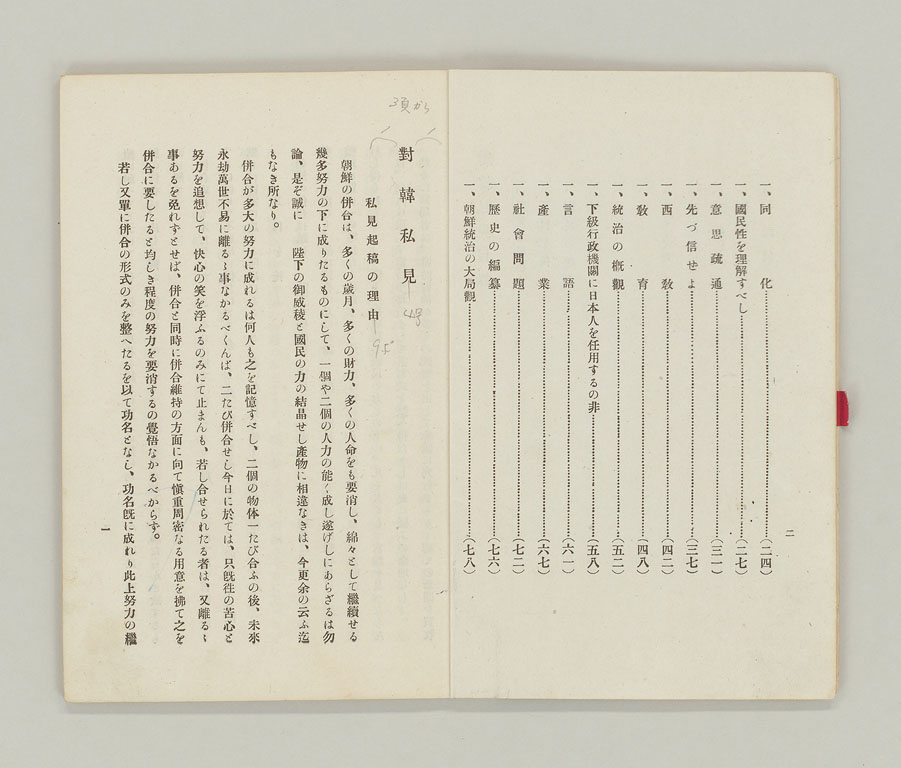 二
一、同化……(二四)
一、國民性を理解すべし……(二七)
一、意思疏通……(三一)
一、先づ信せよ……(三七)
一、西敎……(四二)
一、敎育……(四八)
一、統治の槪觀……(五二)
一、下級行政機關に日本人を任用するの非……(五八)
一、言語……(六一)
一、產業……(六七)
一、社會問題……(七二)
一、歷史の編纂……(七六)
一、朝鮮統治の大局觀……(七八)
3頁から
對韓私見
4号
私見起稿の理由
9.5
朝鮮の併合は、多くの歲月、多くの財力、多くの人命をも要消し、綿々として繼續せる
幾多努力の下に成りたるものにして、一個や二個の人力の能く成し遂げしにあらざるは勿
論、是ぞ誠に 陛下の御威稜と國民の力の結晶せし產物に相違なきは、今更余の云ふ迄
もなき所なり。
併合が多大の努力に成れるは何人も之を記憶すべし、二個の物体一たび合ふの後、未來
永劫萬世不易に離るゝ事なかるべくんば、二たび併合せし今日に於ては、只旣往の苦心と
努力を追想して、快心の笑を浮ふるのみにて止まんも、若し合せられたる者は、又離るゝ
事あるを免れずとせば、併合と同時に併合維持の方面に向て愼重周密なる用意を拂て之を
併合に要したると均しき程度の努力を要消するの覺悟なかるべからず。
若し又單に併合の形式のみを整へたるを以て功名となし、功名旣に成れり此上努力の繼
一